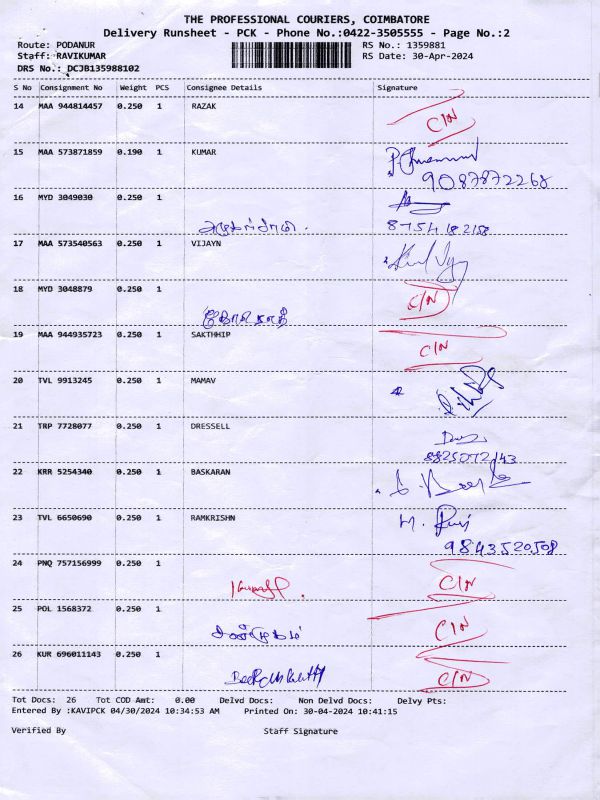 THE PROFESSIONAL COURIERS, COIMBATORE
Delivery Runsheet - PCK - Phone No.:0422-3505555 - Page No.:2
Route: PODANUR RS No.: 1359881
Staff: RAVIKUMAR RS Date: 30-Apr-2024
DRS No.: DCJB135988102
S No Consignment No Weight PCS Consignee Details Signature
14 MAA 944814457 0.250 1 RAZAK C/N
15 MAA 573871859 0.190 1 KUMAR
9087872268
16 MYD 3049030 0.250 1
8754182158
17 MAA 573540563 0.250 1 VIJAYN
18 MYD 3048879 0.250 1 C/N
19 MAA 944935723 0.250 1 SAKTHHIP C/N
20 TVL 9913245 0.250 1 MAMAV
21 TRP 7728077 0.250 1 DRESSELL
8825072143
22 KRR 5254340 0.250 1 BASKARAN
23 TVL 6650690 0.250 1 RAMKRISHN
9843520508
24 PNQ 757156999 0.250 1 C/N
25 POL 1568372 0.250 1 C/N
26 KUR 696011143 0.250 1 C/N
Tot Docs: 26 Tot COD Amt: 0.00 Delvd Docs: Non Delvd Docs: Delvy Pts:
Entered By :KAVIPCK 04/30/2024 10:34:53 AM Printed On: 30-04-2024 10:41:15
Verified By Staff Signature